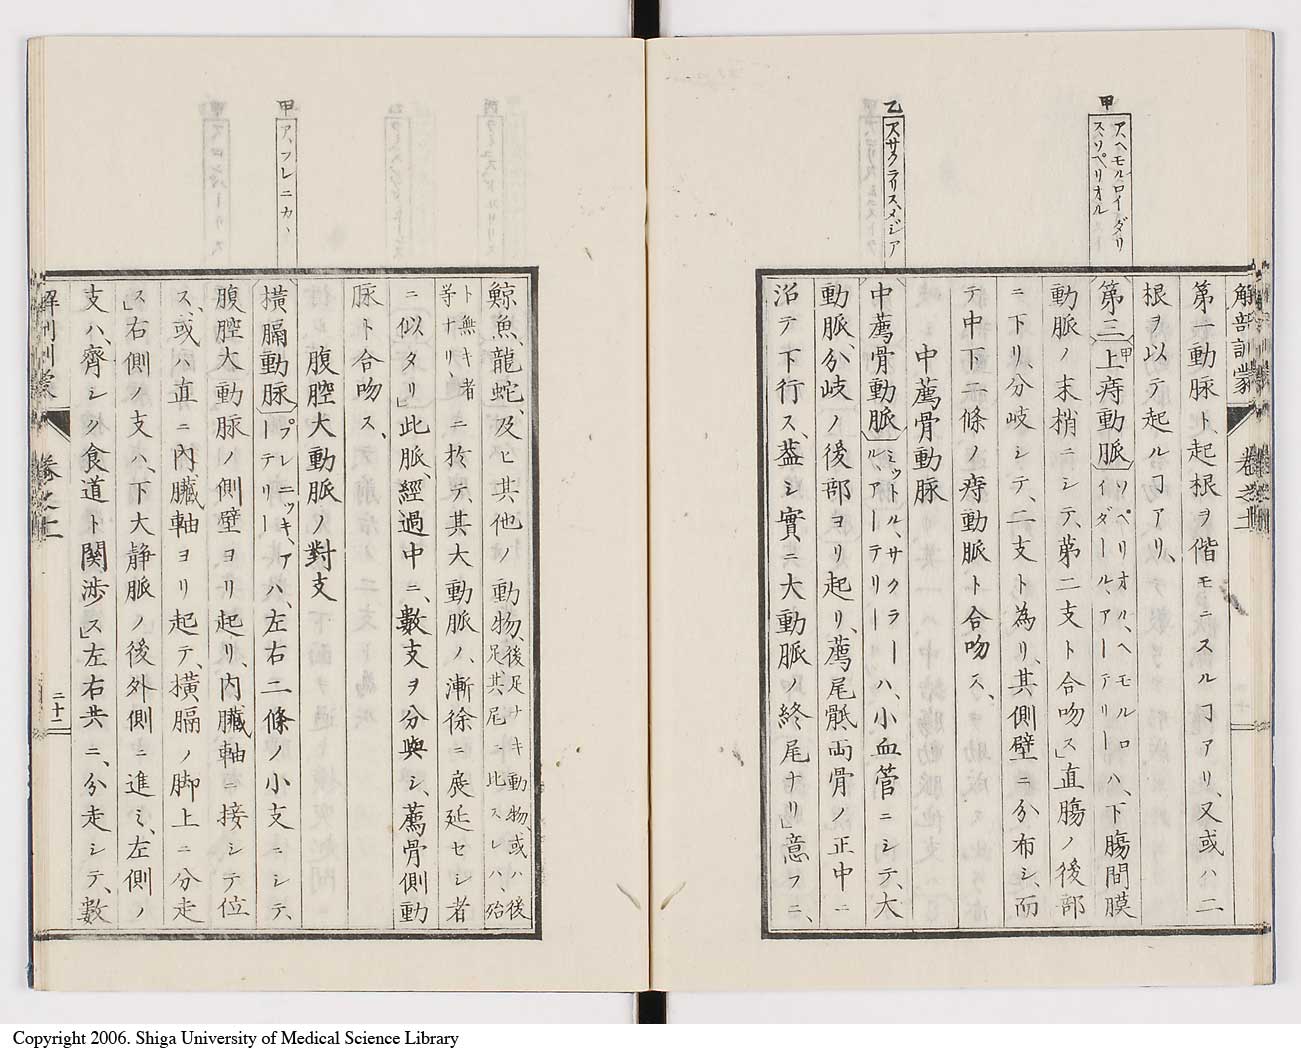 甲
アヘモルロイダリ
スソペリオル
乙
アサクラリスメジア
解剖訓蒙
卷之
第一動脈ト、起根ヲ偕モニスルヿアリ、又或ハ二
根ヲ以テ起ルヿアリ、
第三上痔動脈ソペリオル、ヘモルロイダール、アーテリーハ、下腸間膜
甲
動脈ノ末梢ニシテ、第二支ト合吻ス」直腸ノ後部
ニ下リ、分岐シテ、二支ト為リ、其側壁ニ分布シ、而
テ中下二條ノ痔動脈ト合吻ス、
中薦骨動脈
中薦骨動脈ミットル、サクラール、アーテリーハ、小血管ニシテ、大
動脈、分岐ノ後部ヨリ起リ、薦尾骶両骨ノ正中ニ
沿テ下行ス、葢シ實ニ大動脈ノ終尾ナリ」意フニ、
甲
ア、フレニカ、
鯨魚、龍蛇、及ヒ其他ノ動物、後足ナキ動物、或ハ後足其尾ニ比スレハ、殆
ト無キ者等ナリ、ニ於テ、其大動脈ノ、漸徐ニ展延セシ者
ニ似タリ」此脈、經過中ニ、數支ヲ分與シ、薦骨側動
脈ト合吻ス、
腹腔大動脈ノ對支
横膈動脈フレニッキ、アーテリーハ、左右二條ノ小支ニシテ、
腹腔大動脈ノ側壁ヨリ起リ、内臓軸ニ接シテ位
ス、或ハ直ニ内臓軸ヨリ起テ、横膈ノ脚上ニ分走
ス」右側ノ支ハ、下大静脈ノ後外側ニ進ミ、左側ノ
支ハ、齊シク食道ト関渉ス」左右共ニ、分走シテ、數
解剖訓蒙
卷之十二
二十二